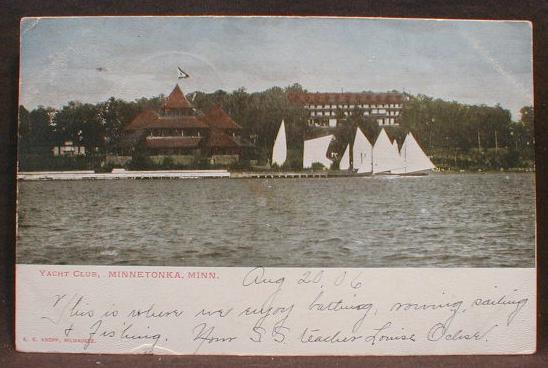 YACHT CLUB, MINNETONKA, MINN.
Aug 20, 06
This is where we enjoy bathing, rowing, sailing
& fishing. Your S S teacher Louise Ochse.
E. C. KROPP, MILWAUKEE.